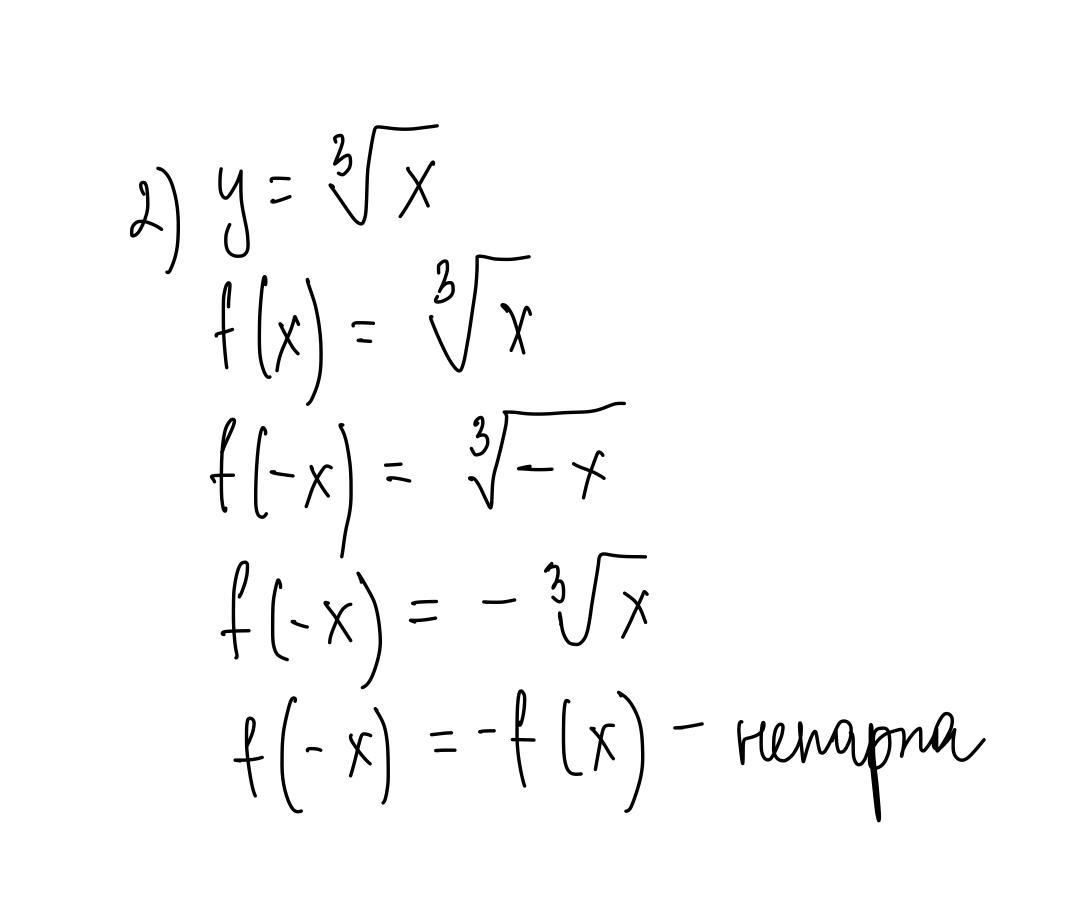 2) y = ∛x
f(x) = ∛x
f(-x) = ∛-x
f(-x) = - ∛x
f(-x) = -f(x) - непарна